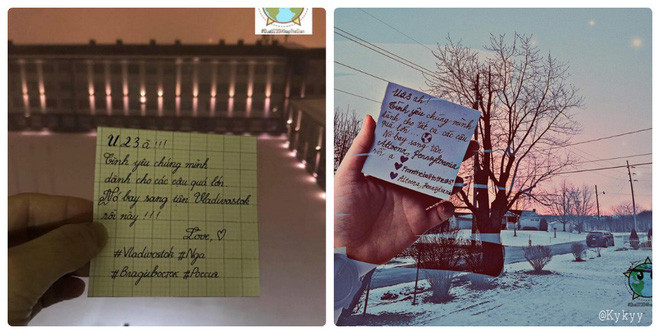 U23 à !!!
Tình yêu chúng mình
dành cho các cậu quá lớn.
Nó bay sang tận Vladivostok
rồi này !!!
Love, ♡
#Vladivostok #Nga
#Владивосток #Россия
U23 ah!
Tình yêu chúng mình
dành cho tất cả các cậu
quá lớn
Nó bay sang tận
Altoona, Pennsylvania
rồi ạ
Altoona, Pennsylvania
@Kykyy